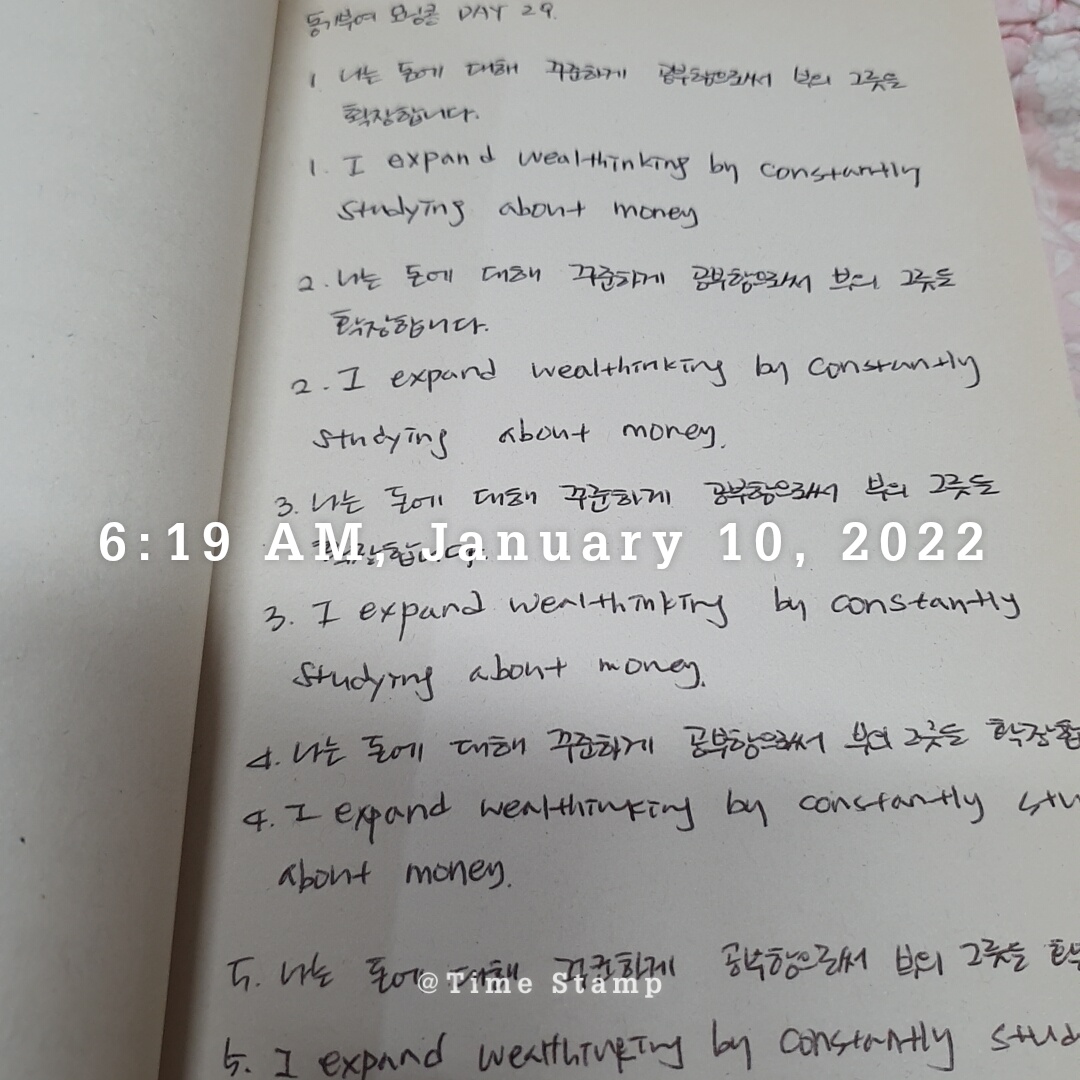 동기부여 모닝콜 DAY 29.
1. 나는 돈에 대해 꾸준하게 공부함으로서 부의 그릇을
확장합니다.
1. I expand wealthinking by constantly
studying about money
2. 나는 돈에 대해 꾸준하게 공부함으로써 부의 그릇을
확장합니다.
2. I expand wealthinking by constantly
studying about money.
3. 나는 돈에 대해 꾸준하게 공부함으로써 부의 그릇을
확장합니다.
6:19 AM, January 10, 2022
3. I expand wealthinking by constantly
studying about money.
4. 나는 돈에 대해 꾸준하게 공부함으로써 부의 그릇을 확장합
4. I expand wealthinking by constantly stu
about money.
5. 나는 돈에 대해 공부함으로써 부의 그릇을 확
@Time Stamp
5. I expand wealthinking by constantly stud